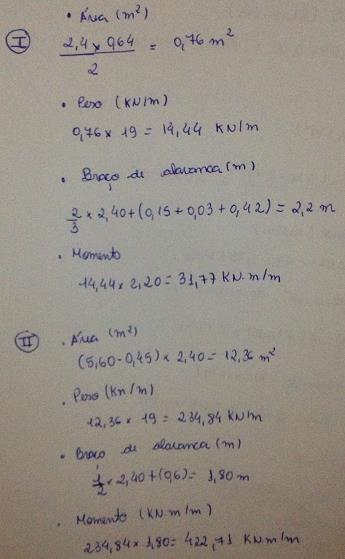 • Área (m²)
I
2,4 x 0,64 = 0,76 m²
2
• Peso (KN/m)
0,76 x 19 = 14,44 KN/m
• Braço de alavanca (m)
2/3 x 2,40 + (0,15 + 0,03 + 0,42) = 2,2 m
• Momento
14,44 x 2,20 = 31,77 KN.m/m
II
• Área (m²)
(5,60 - 0,45) x 2,40 = 12,36 m²
• Peso (Kn/m)
12,36 x 19 = 234,84 KN/m
• Braço de alavanca (m)
1/2 x 2,40 + (0,6) = 1,80 m
• Momento (KN.m/m)
234,84 x 1,80 = 422,71 KN m/m